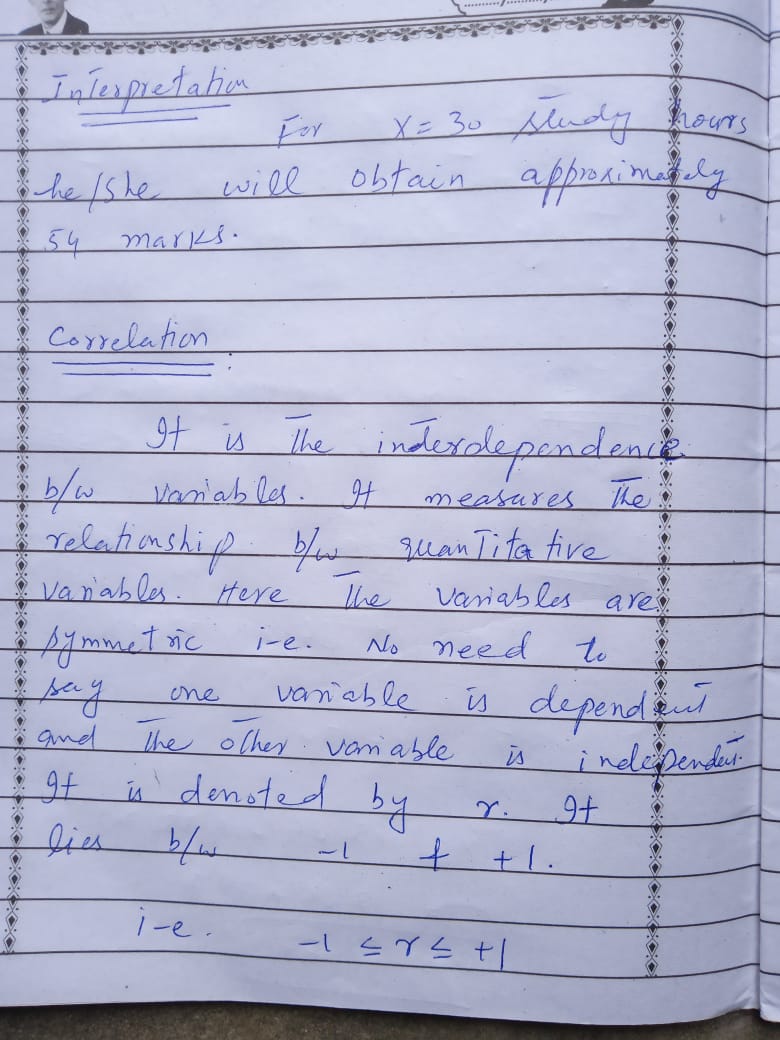 Interpretation
For X = 30 study hours
he/she will obtain approximately
54 marks.
Correlation.
It is the interdependence
b/w variables. It measures the
relationship b/w quantitative
variables. Here the variables are
symmetric i-e. No need to
say one variable is dependent
and the other variable is independent.
It is denoted by r. It
lies b/w -1 & +1.
i-e. -1 ≤ r ≤ +1